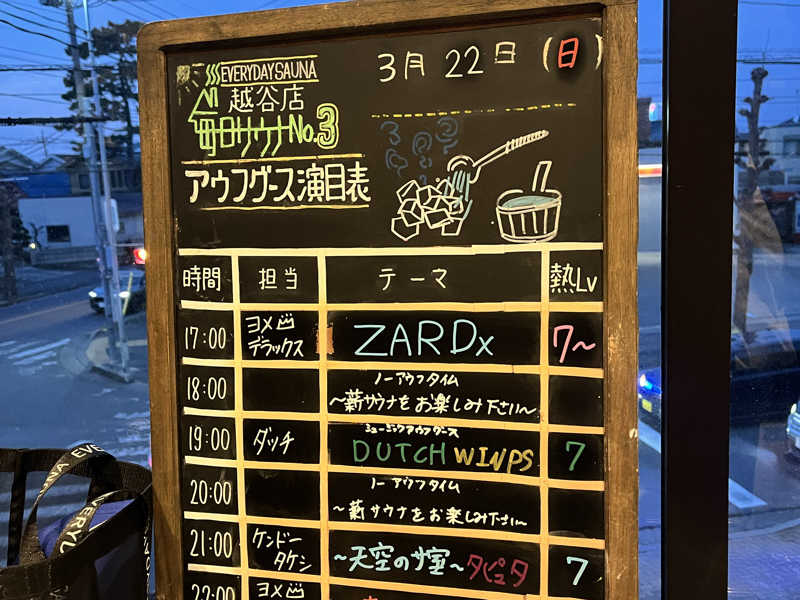 EVERYDAYSAUNA
越谷店
毎日サウナNo.3
アウフグース演目表
3月 22日 (日)
時間 担当 テーマ 熱Lv
17:00 ヨメ デラックス ZARDx 7~
18:00 ノーアウフタイム
~薪サウナをお楽しみ下さい~
19:00 ダッチ ミュージックアウフグース
DUTCH WINPS 7
20:00 ノーアウフタイム
~薪サウナをお楽しみ下さい~
21:00 ケンドー タケシ ~天空のサ室~タピュタ 7
22:00 ヨメ